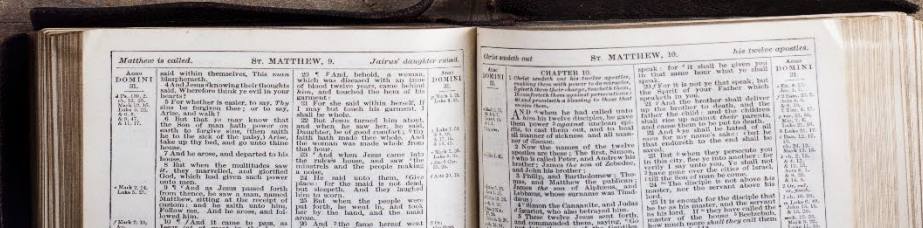 Matthew is called. ST. MATTHEW, 9. Jairus' daughter raised.
Anno
DOMINI
31.
said within themselves, This man
blasphemeth.
4 And Jesus knowing their thoughts
said, Wherefore think ye evil in your
hearts?
5 For whether is easier, to say, Thy
sins be forgiven thee; or to say,
Arise, and walk?
6 But that ye may know that
the Son of man hath power on
earth to forgive sins, (then saith
he to the sick of the palsy,) Arise,
take up thy bed, and go unto thine
house.
7 And he arose, and departed to his
house.
8 But when the multitudes saw
it, they marvelled, and glorified
God, which had given such power
unto men.
9 ¶ And as Jesus passed forth
from thence, he saw a man, named
Matthew, sitting at the receipt of
custom: and he saith unto him,
Follow me. And he arose, and fol-
lowed him.
10 ¶ And it came to pass, as
20 ¶ And, behold, a woman,
which was diseased with an issue
of blood twelve years, came behind
him, and touched the hem of his
garment:
21 For she said within herself, If
I may but touch his garment, I
shall be whole.
22 But Jesus turned him about,
and when he saw her, he said,
Daughter, be of good comfort; thy
faith hath made thee whole. And
the woman was made whole from
that hour.
23 And when Jesus came into
the ruler's house, and saw the
minstrels and the people making
a noise,
24 He said unto them, Give
place: for the maid is not dead,
but sleepeth. And they laughed
him to scorn.
25 But when the people were
put forth, he went in, and took
her by the hand, and the maid
arose.
26 And the fame hereof went
Christ sendeth out ST. MATTHEW, 10. his twelve apostles.
CHAPTER 10.
1 Christ sendeth out his twelve apostles,
AND when he had called unto
him his twelve disciples, he gave
them power against unclean spi-
rits, to cast them out, and to heal
all manner of sickness and all man-
ner of disease.
2 Now the names of the twelve
apostles are these; The first, Simon,
who is called Peter, and Andrew his
brother; James the son of Zebedee,
and John his brother;
3 Philip, and Bartholomew; Tho-
mas, and Matthew the publican;
James the son of Alphæus, and
Lebbæus, whose surname was Thad-
dæus;
4 Simon the Canaanite, and Judas
Iscariot, who also betrayed him.
5 These twelve Jesus sent forth,
and commanded them, saying, Go
speak: for it shall be given you
in that same hour what ye shall
speak.
20 For it is not ye that speak, but
the Spirit of your Father which
speaketh in you.
21 And the brother shall deliver
up the brother to death, and the
father the child: and the children
shall rise up against their parents,
and cause them to be put to death.
22 And ye shall be hated of all
men for my name's sake: but he
that endureth to the end shall be
saved.
23 But when they persecute you
in this city, flee ye into another: for
verily I say unto you, Ye shall not
have gone over the cities of Israel,
till the Son of man be come.
24 The disciple is not above his
master, nor the servant above his
lord.
25 It is enough for the disciple that
he be as his master, and the servant
as his lord. If they have called the
master of the house Beelzebub,
how much more shall they call them
Anno
DOMINI
31.